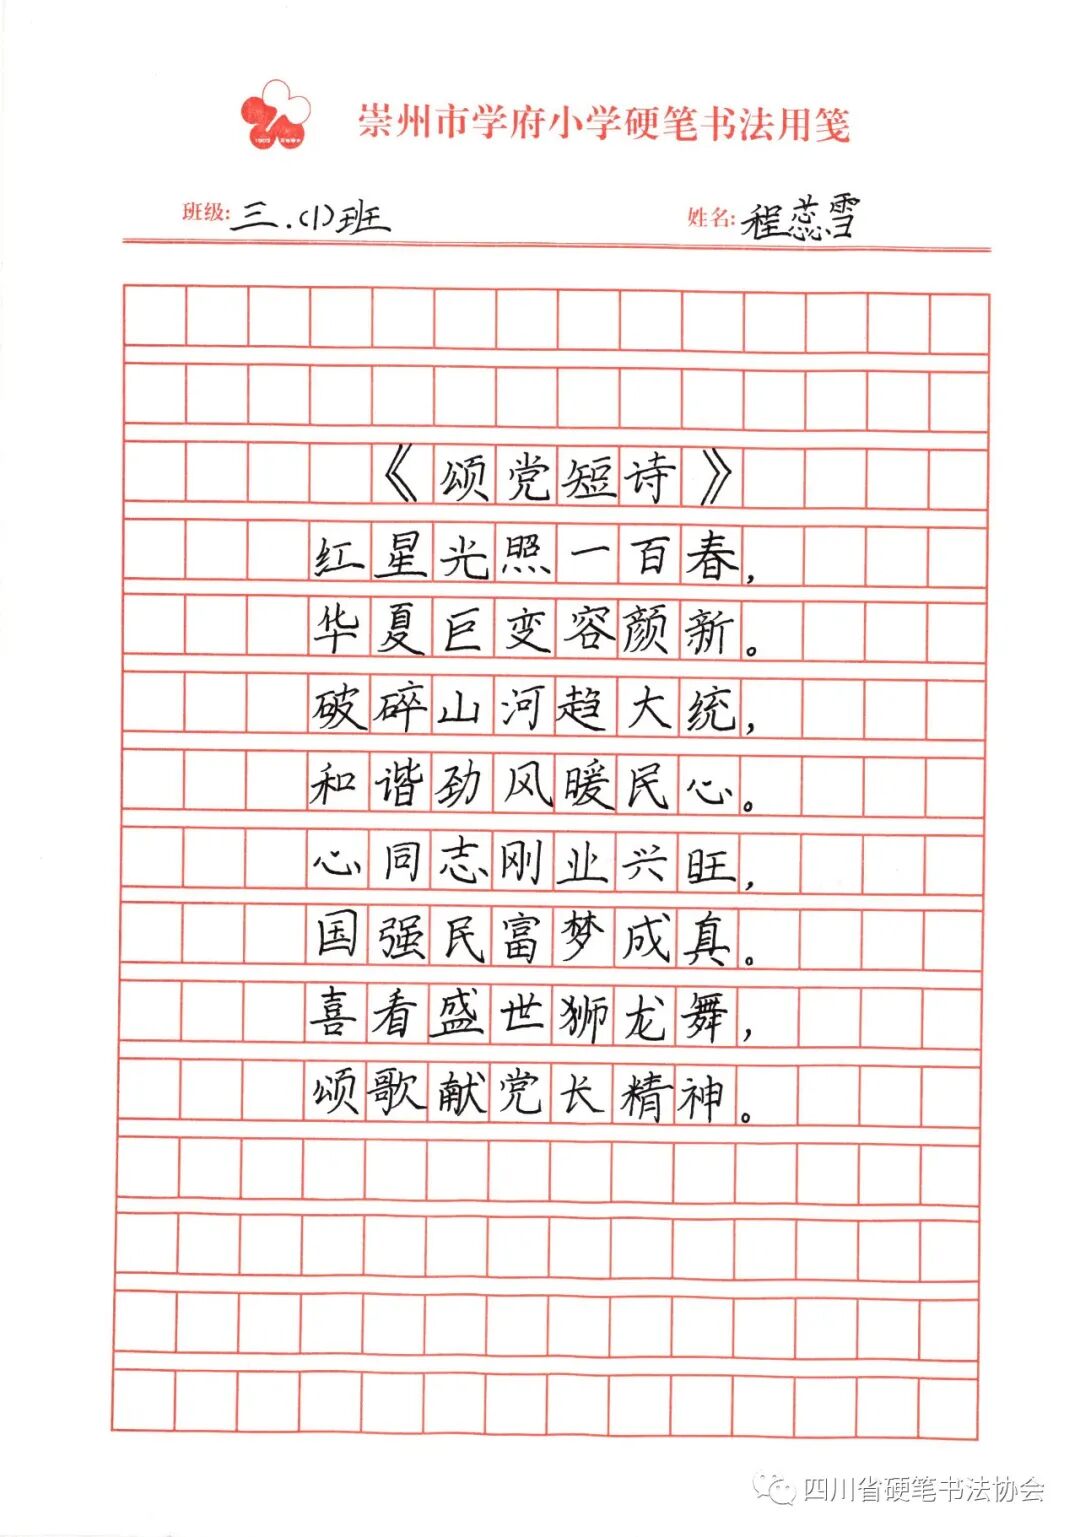 崇州市学府小学硬笔书法用笺
班级:三.(1)班 姓名:程蕊雪
《颂党短诗》
红星光照一百春,
华夏巨变容颜新。
破碎山河趋大统,
和谐劲风暖民心。
心同志刚业兴旺,
国强民富梦成真。
喜看盛世狮龙舞,
颂歌献党长精神。
四川省硬笔书法协会